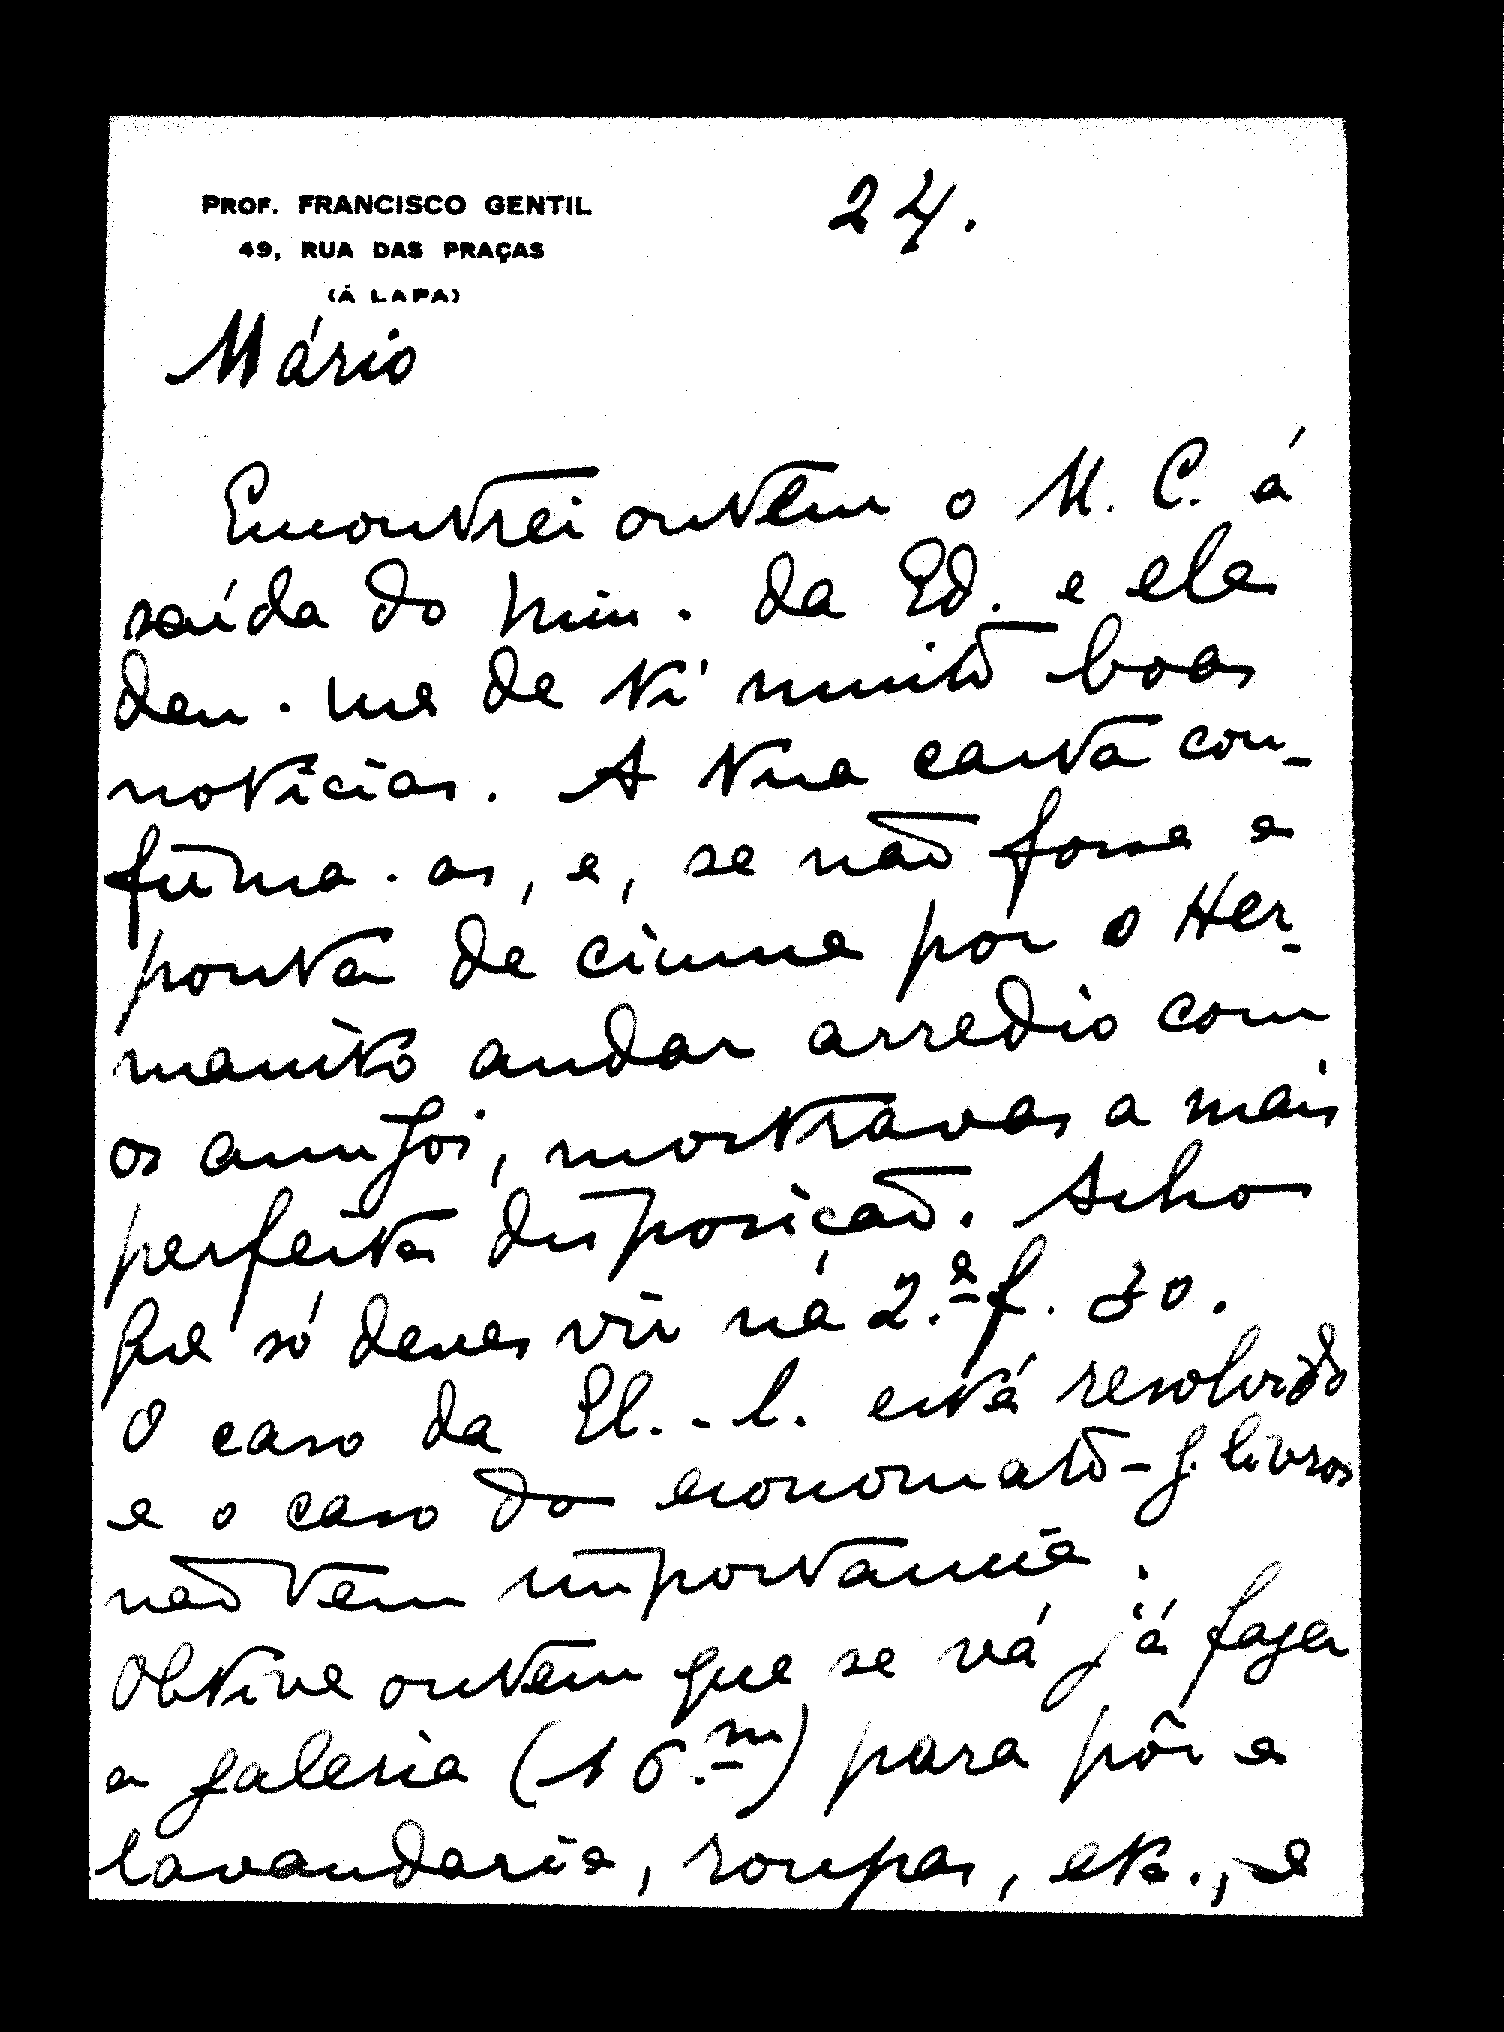 PROF. FRANCISCO GENTIL
49, RUA DAS PRAÇAS
(Á LAPA)
24.
Mário
Encontrei ontem o M. C. á
saída do Min. da Ed. e ele
deu-me de ti muito boas
notícias. A tua carta con-
firma-as, e, se não fosse a
ponta de ciume por o Her-
manito andar arredio com
os amigos, mostravas a mais
perfeita disposição. Acho
que só deves vir na 2.ª f. 30.
O caso da El.-l. está resolvido
e o caso do economato-g. livros
não tem importancia.
Obtive ontem que se vá já fazer
a galeria (16.m) para pôr a
lavandaria, roupas, etc., e